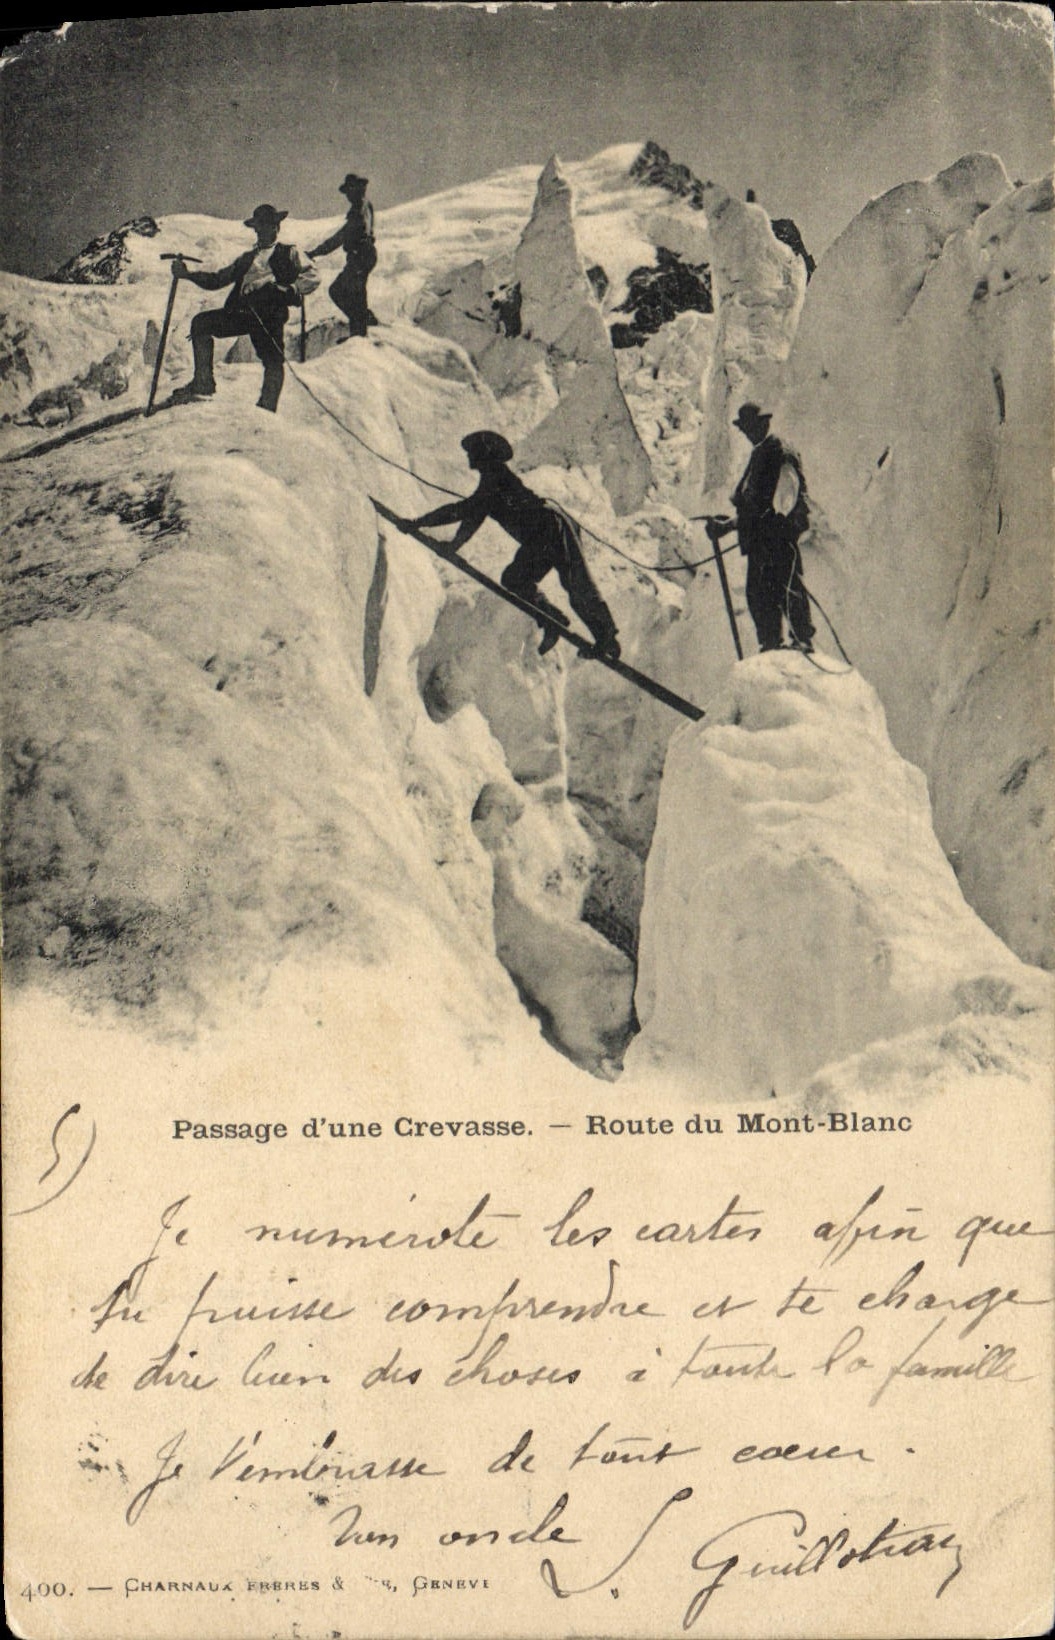 Passage d'une Crevasse. — Route du Mont-Blanc
5)
Je numérote les cartes afin que
tu puisse comprendre et te charge
de dire bien des choses à toute la famille
Je t'embrasse de tout coeur.
Ton oncle
L. Guillot
400. — CHARNAUX FRERES & GENEVE